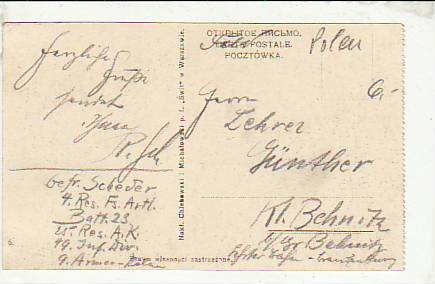 Herzliche
Grüße
sendet
Ihnen
gefr. Scheder
4. Res. Fs. Artl.
Batt. 23
III Res. A.K.
49. Inf. Div.
9. Armee - Polen
Nakł. Chlebowski i Michałowski p. f. „Świt" w Warszawie.
ОТКРЫТОЕ ПИСЬМО.
CARTE POSTALE.
POCZTÓWKA.
Polen
6,-
Herrn
Lehrer
Günther
Kl. Behnitz
b/ Gr. Behnitz
Prawo własności zastrzeżone.